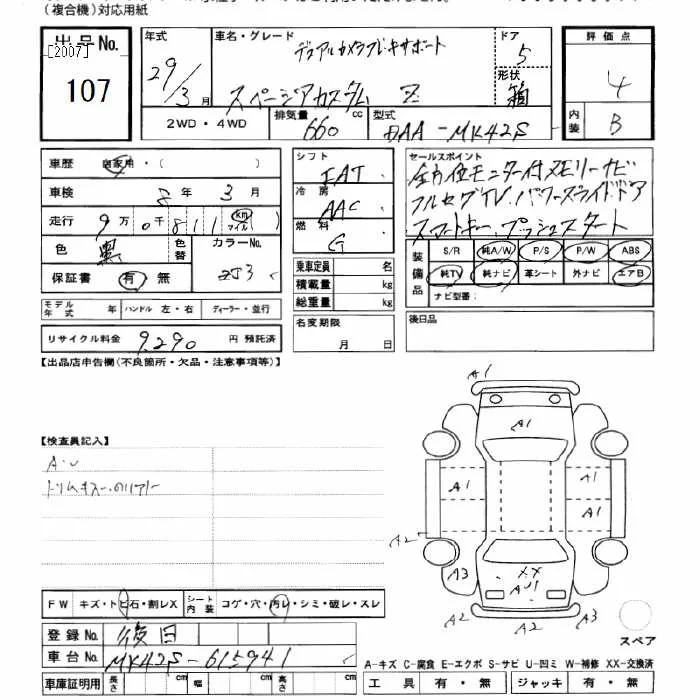 (複合機)対応用紙
出品No.
[2007]
107
年式 29/3 月
車名・グレード
デュアルカメラブレーキサポート
スペーシアカスタム Z
ドア 5
形状 箱
評価点
4
内装 B
2WD・4WD
排気量 660 cc
型式 DAA-MK42S
車歴 自家用・( )
車検 8年 3月
走行 9万0千811 km マイル
色 黒 色替 カラーNo. ZJ3
保証書 有・無
モデル年式 年 ハンドル 左・右 ディーラー・並行
リサイクル料金 9,290 円 預託済
シフト FAT
冷房 AAC
燃料 G
乗車定員 名
積載量 kg
総重量 kg
名変期限
月 日
セールスポイント
全方位モニター付メモリーナビ
フルセグTV パワースライドドア
スマートキー プッシュスタート
装備品
S/R 純A/W P/S P/W ABS
純TV 純ナビ 革シート 外ナビ エアB
ナビ型番:
後日品
【出品店申告欄(不良箇所・欠品・注意事項等)】
【検査員記入】
A・U
トリムキズ
A1
A1
A1
A1
A1
A2
A2
A3
A3
XX
A2
A2
A3
スペア
FW キズ・トビ石・割レX シート内装 コゲ・穴・汚レ・シミ・破レ・スレ
登録No. 後日
車台No. MK42S-615941
車庫証明用 長さ cm 幅 cm 高さ cm
A-キズ C-腐食 E-エクボ S-サビ U-凹ミ W-補修 XX-交換済
工具 有・無 ジャッキ 有・無